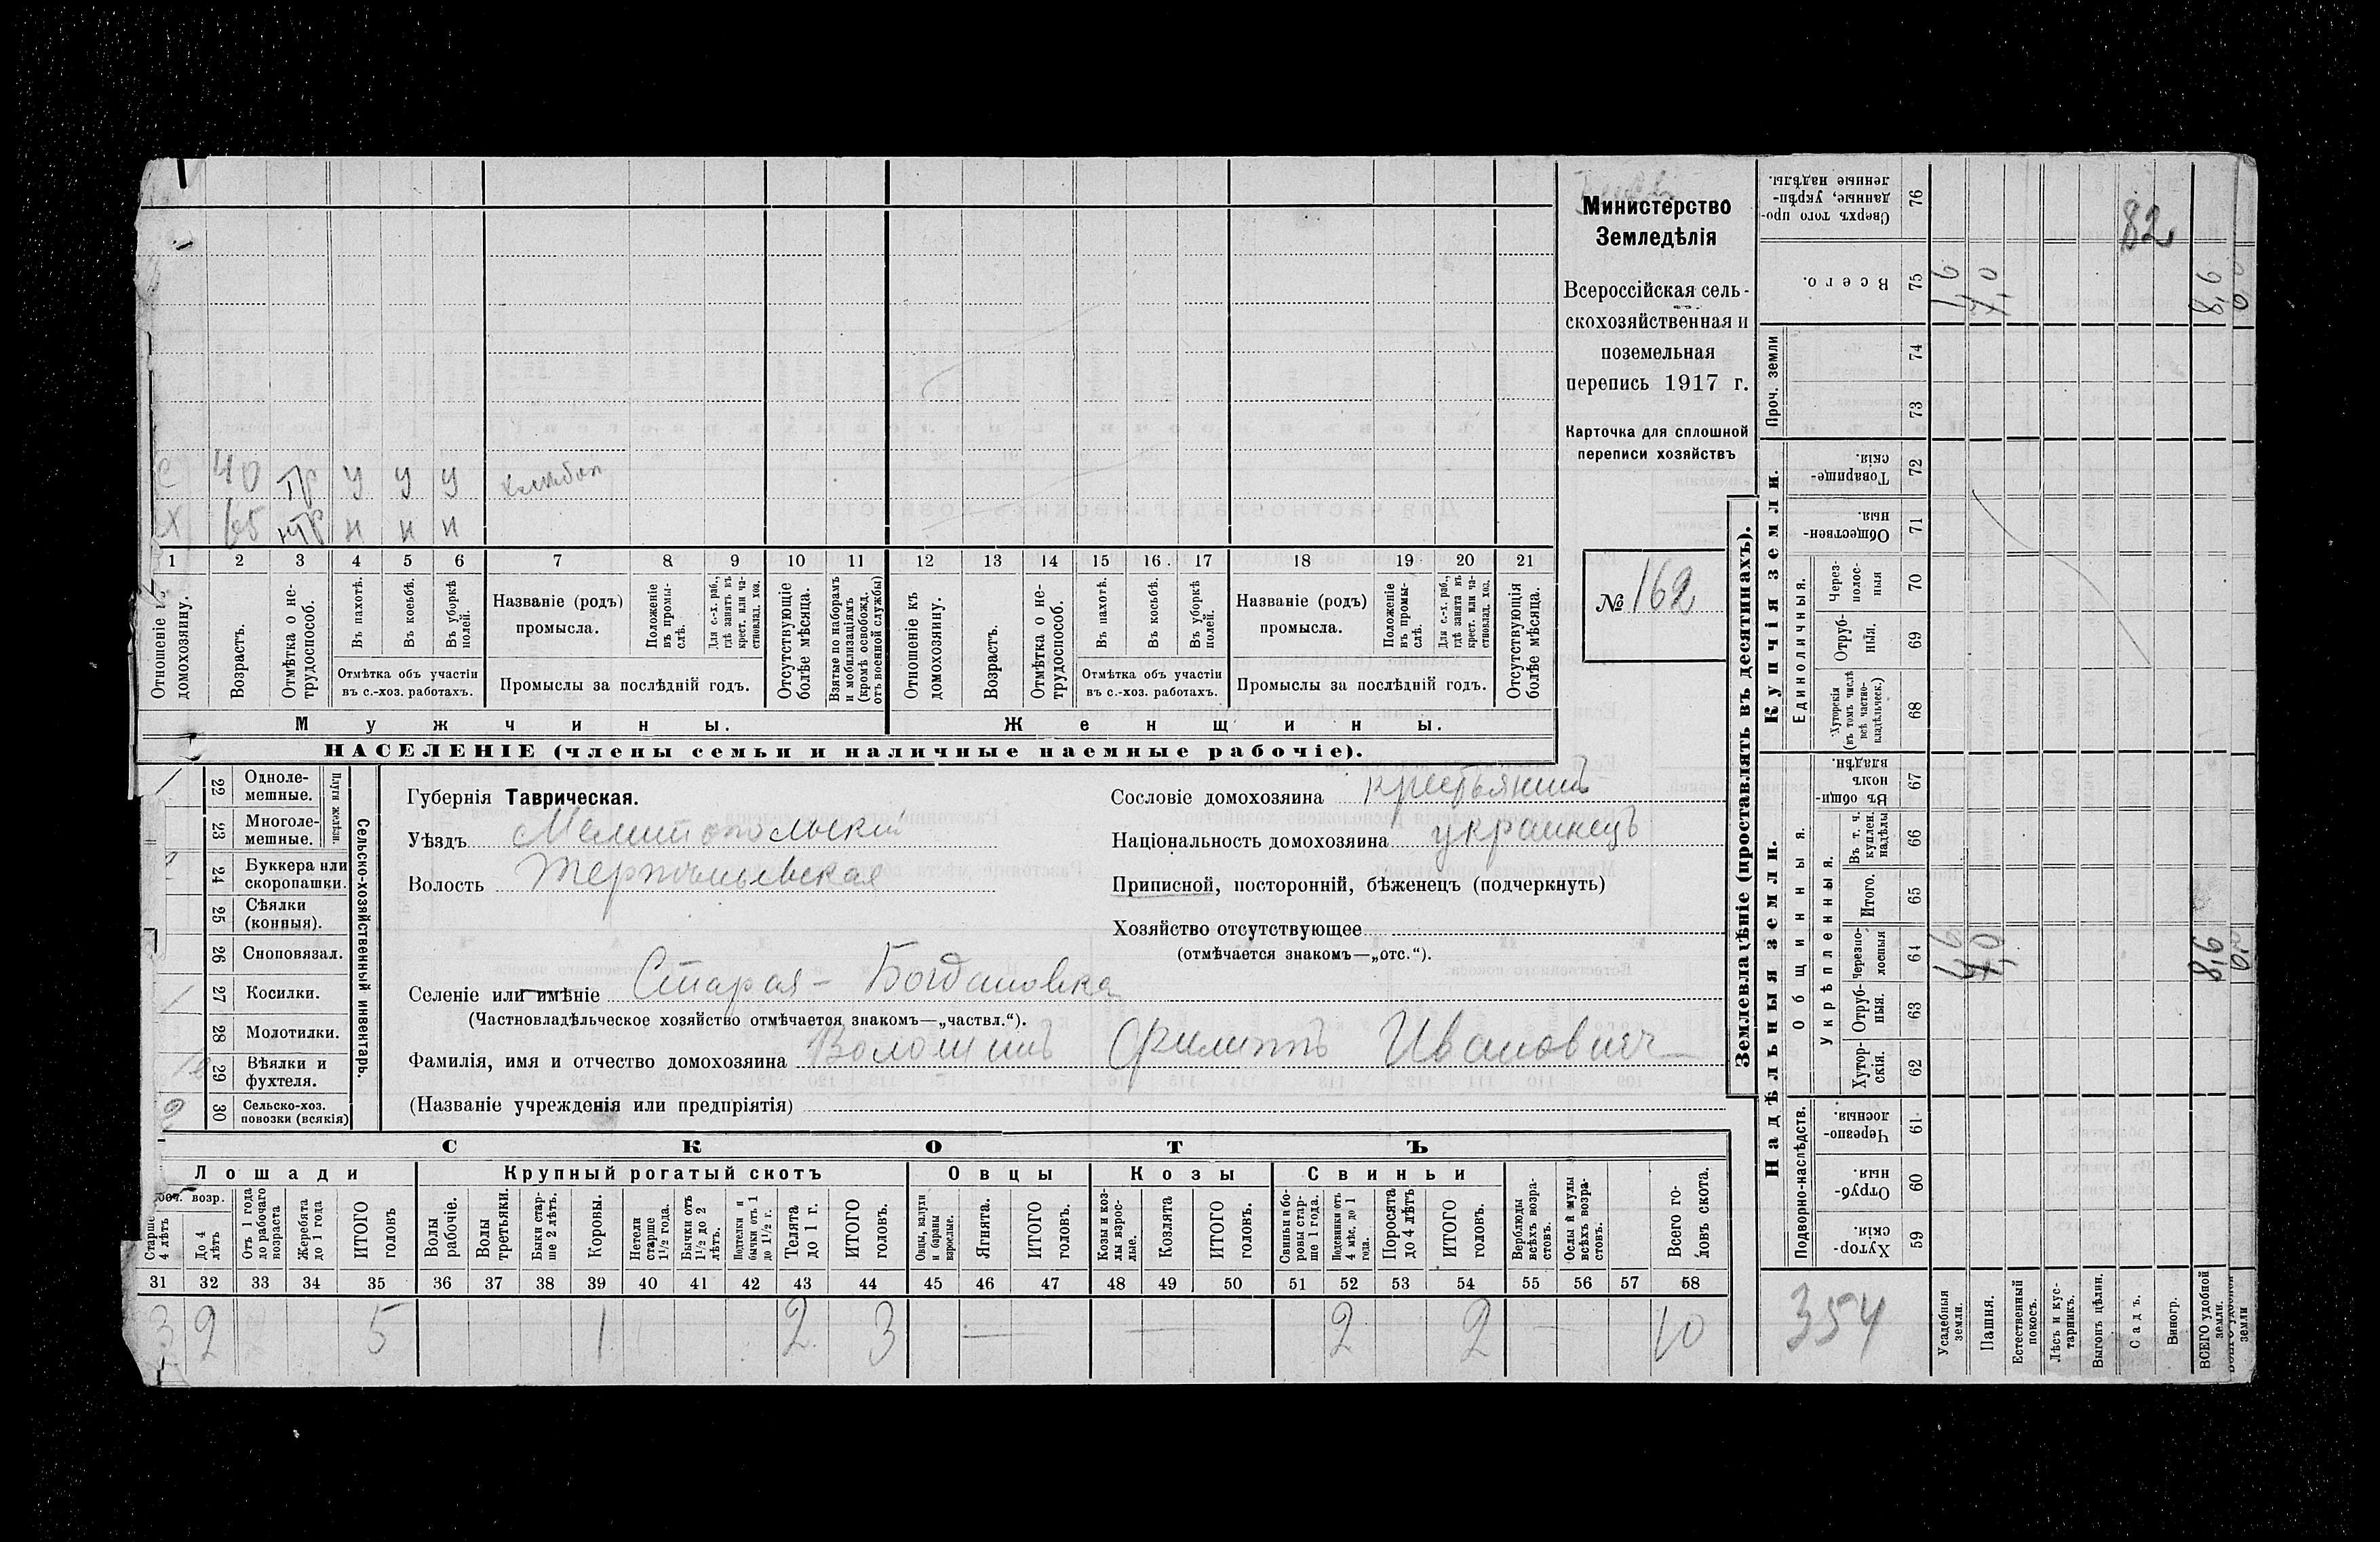 Министерство
Земледѣлія
Всероссійская сель-
скохозяйственная и
поземельная
перепись 1917 г.
Карточка для сплошной
переписи хозяйствъ
№ 162
С 40 тр у у у хлѣбоп
Х 65 нтр н н н
1 2 3 4 5 6 7 8 9 10 11 12 13 14 15 16 17 18 19 20 21
Отношеніе къ домохозяину.
Возрастъ.
Отмѣтка о не-трудоспособ.
Въ пахотѣ.
Въ косьбѣ.
Въ уборкѣ полей.
Отмѣтка объ участіи
въ с.-хоз. работахъ.
Названіе (родъ)
промысла.
Положеніе въ промы-слѣ.
Для с.-х. раб., гдѣ занятъ въ крест. или ча-стновлад. хоз.
Промыслы за послѣдній годъ.
Отсутствующіе болѣе мѣсяца.
Взятые по наборамъ и мобилизаціямъ (кромѣ освобожд. отъ военной службы)
Отношеніе къ домохозяину.
Возрастъ.
Отмѣтка о не-трудоспособ.
Въ пахотѣ.
Въ косьбѣ.
Въ уборкѣ полей.
Отмѣтка объ участіи
въ с.-хоз. работахъ.
Названіе (родъ)
промысла.
Положеніе въ промы-слѣ.
Для с.-х. раб., гдѣ занята въ крест. или ча-стновлад. хоз.
Промыслы за послѣдній годъ.
Отсутствующія болѣе мѣсяца.
Мужчины.
Женщины.
НАСЕЛЕНІЕ (члены семьи и наличные наемные рабочіе).
22 Одноле-мешные.
23 Многоле-мешные.
Плуги желѣзн.
24 Буккера или скоропашки.
25 Сѣялки (конныя).
26 Сноповязал.
27 Косилки.
28 Молотилки.
29 Вѣялки и фухтеля.
2 30 Сельско-хоз. повозки (всякія)
Сельско-хозяйственный инвентарь.
Губернія Таврическая.
Уѣздъ Мелитопольскій
Волость Терпѣньевская
Селеніе или имѣніе Старая - Богдановка
(Частновладѣльческое хозяйство отмѣчается знакомъ—„частвл.“).
Фамилія, имя и отчество домохозяина Волошинъ Филиппъ Ивановичъ
(Названіе учрежденія или предпріятія)
Сословіе домохозяина крестьянинъ
Національность домохозяина украинецъ
Приписной, посторонній, бѣженецъ (подчеркнуть)
Хозяйство отсутствующее
(отмѣчается знакомъ—„отс.“).
СКОТЪ
Лошади
Крупный рогатый скотъ
Овцы
Козы
Свиньи
Рабоч. возр.
Старше 4 лѣтъ
До 4 лѣтъ
Отъ 1 года до рабочаго возраста
Жеребята до 1 года
ИТОГО головъ
Волы рабочіе.
Волы третьяки.
Быки стар-ше 2 лѣтъ.
Коровы.
Нетели старше 1½ года.
Бычки отъ 1½ до 2 лѣтъ.
Подтелки и бычки отъ 1 до 1½ г.
Телята до 1 г.
ИТОГО головъ.
Овцы, валухи и бараны взрослые.
Ягнята.
ИТОГО головъ.
Козы и коз-лы взрос-лые.
Козлята
ИТОГО головъ.
Свиньи и бо-ровы стар-ше 1 года.
Подсвинки отъ 4 мѣс. до 1 года.
Поросята до 4 лѣтъ
ИТОГО головъ.
Верблюды всѣхъ возра-стовъ.
Ослы и мулы всѣхъ возра-стовъ.
Всего го-ловъ скота.
31 32 33 34 35 36 37 38 39 40 41 42 43 44 45 46 47 48 49 50 51 52 53 54 55 56 57 58
3 2 5 1 2 3 — — 2 2 — 10
Землевладѣніе (проставлять въ десятинахъ).
Надѣльныя земли.
Купчія земли.
Проч. земли
Подворно-наслѣдств.
Общинныя.
Укрѣпленныя.
Единоличныя.
Сверхъ того про-данные, укрѣп-ленные надѣлы. 76
Всего. 75
74
73
Товарище-скія. 72
Обществен-ныя. 71
Через-полос-ныя 70
Отруб-нія. 69
Хуторскія (въ томъ числѣ всѣ частно-владѣльческ.) 68
Въ общин-номъ владѣн. 67
Въ т. ч. куплен. надѣлы 66
Итого. 65
Черезпо-лосныя 64
Отруб-ныя. 63
Хутор-скія. 62
Черезпо-лосныя. 61
Отруб-ныя. 60
Хутор-скія. 59
354
82
Усадебныя земли.
Пашня.
Естественный покосъ.
Лѣсъ и кус-тарникъ.
Выгонъ цѣлин.
Садъ.
Виногр.
ВСЕГО удобной земли.